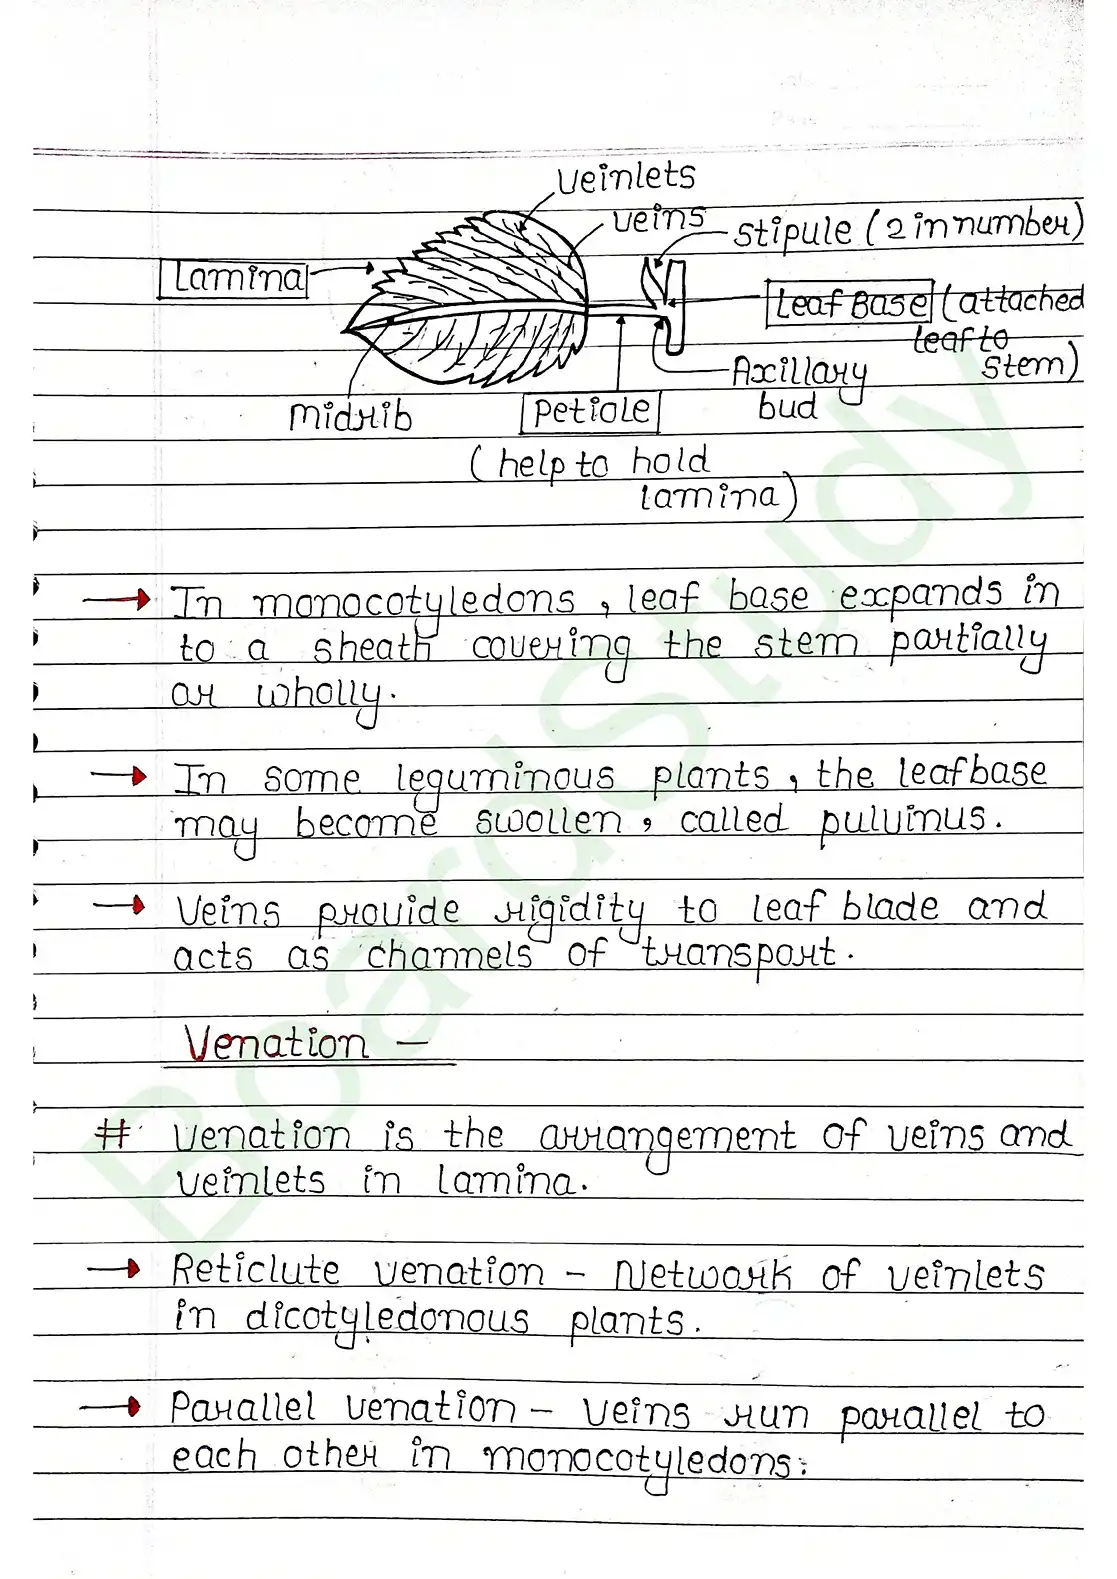 veinlets
veins
stipule (2 in number)
Lamina
Leaf Base (attached
leaf to
stem)
Axillary
bud
midrib
Petiole
(help to hold
lamina)
→ In monocotyledons, leaf base expands in
to a sheath covering the stem partially
or wholly.
→ In some leguminous plants, the leafbase
may become swollen, called pulvinus.
→ Veins provide rigidity to leaf blade and
acts as channels of transport.
Venation –
# Venation is the arrangement of veins and
veinlets in lamina.
→ Reticlute venation – Network of veinlets
in dicotyledonous plants.
→ Parallel venation – Veins run parallel to
each other in monocotyledons.
BoardStudy